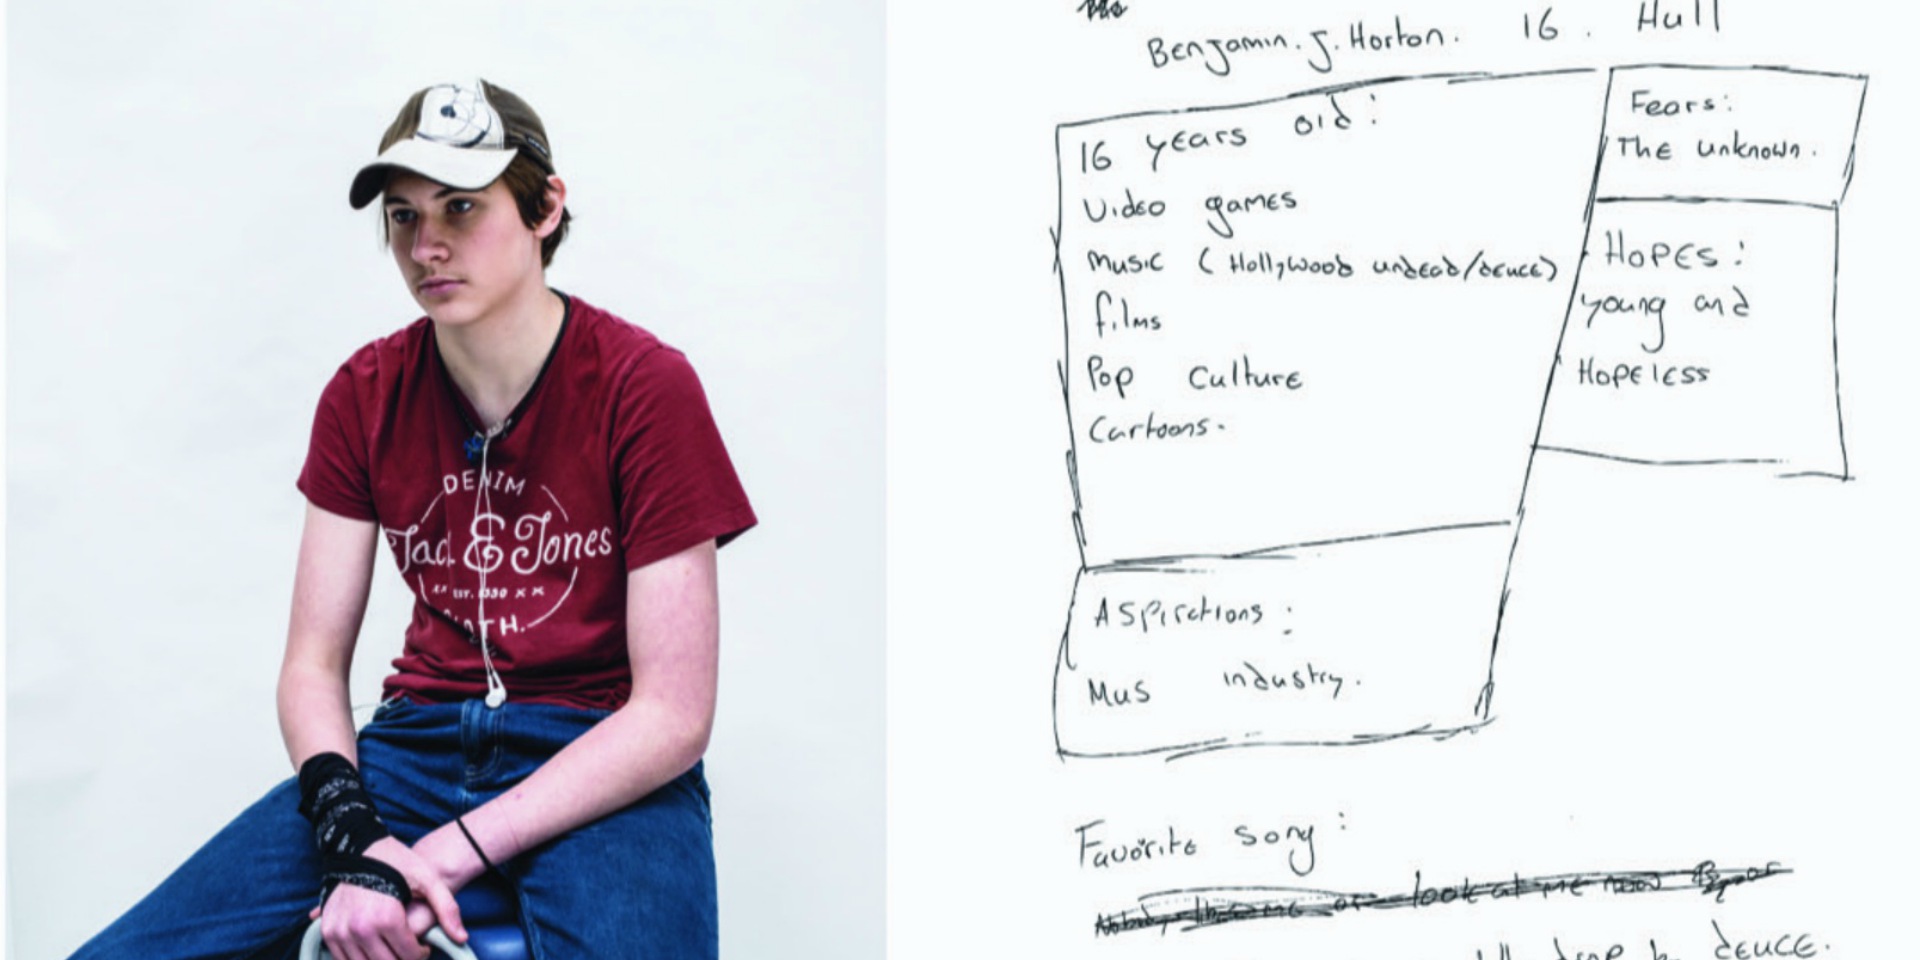 DENIM
Jack & Jones
XX EST. 1990 XX
CLOTH.
Benjamin. J. Horton. 16. Hull
16 years old:
Video games
Music (Hollywood undead/deuce)
films
Pop Culture
Cartoons.
Fears:
The unknown.
Hopes:
young and
Hopeless
Aspirations:
Mus industry.
Favorite song:
look at me now
deuce.